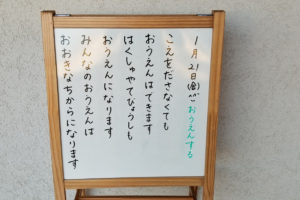 1月21日(金) おうえんする
こえをださなくても
おうえんはできます
はくしゅやてびょうしも
おうえんになります
みんなのおうえんは
おおきなちからになります